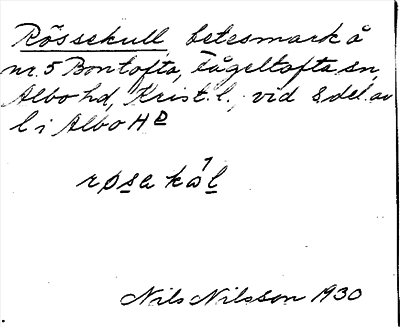 Rössekull, betesmark å
nr. 5 Bontofta, Fågeltofta sn,
Albo hd, Krist. l., vid S del. av
l i Albo HD
Nils Nilsson 1930